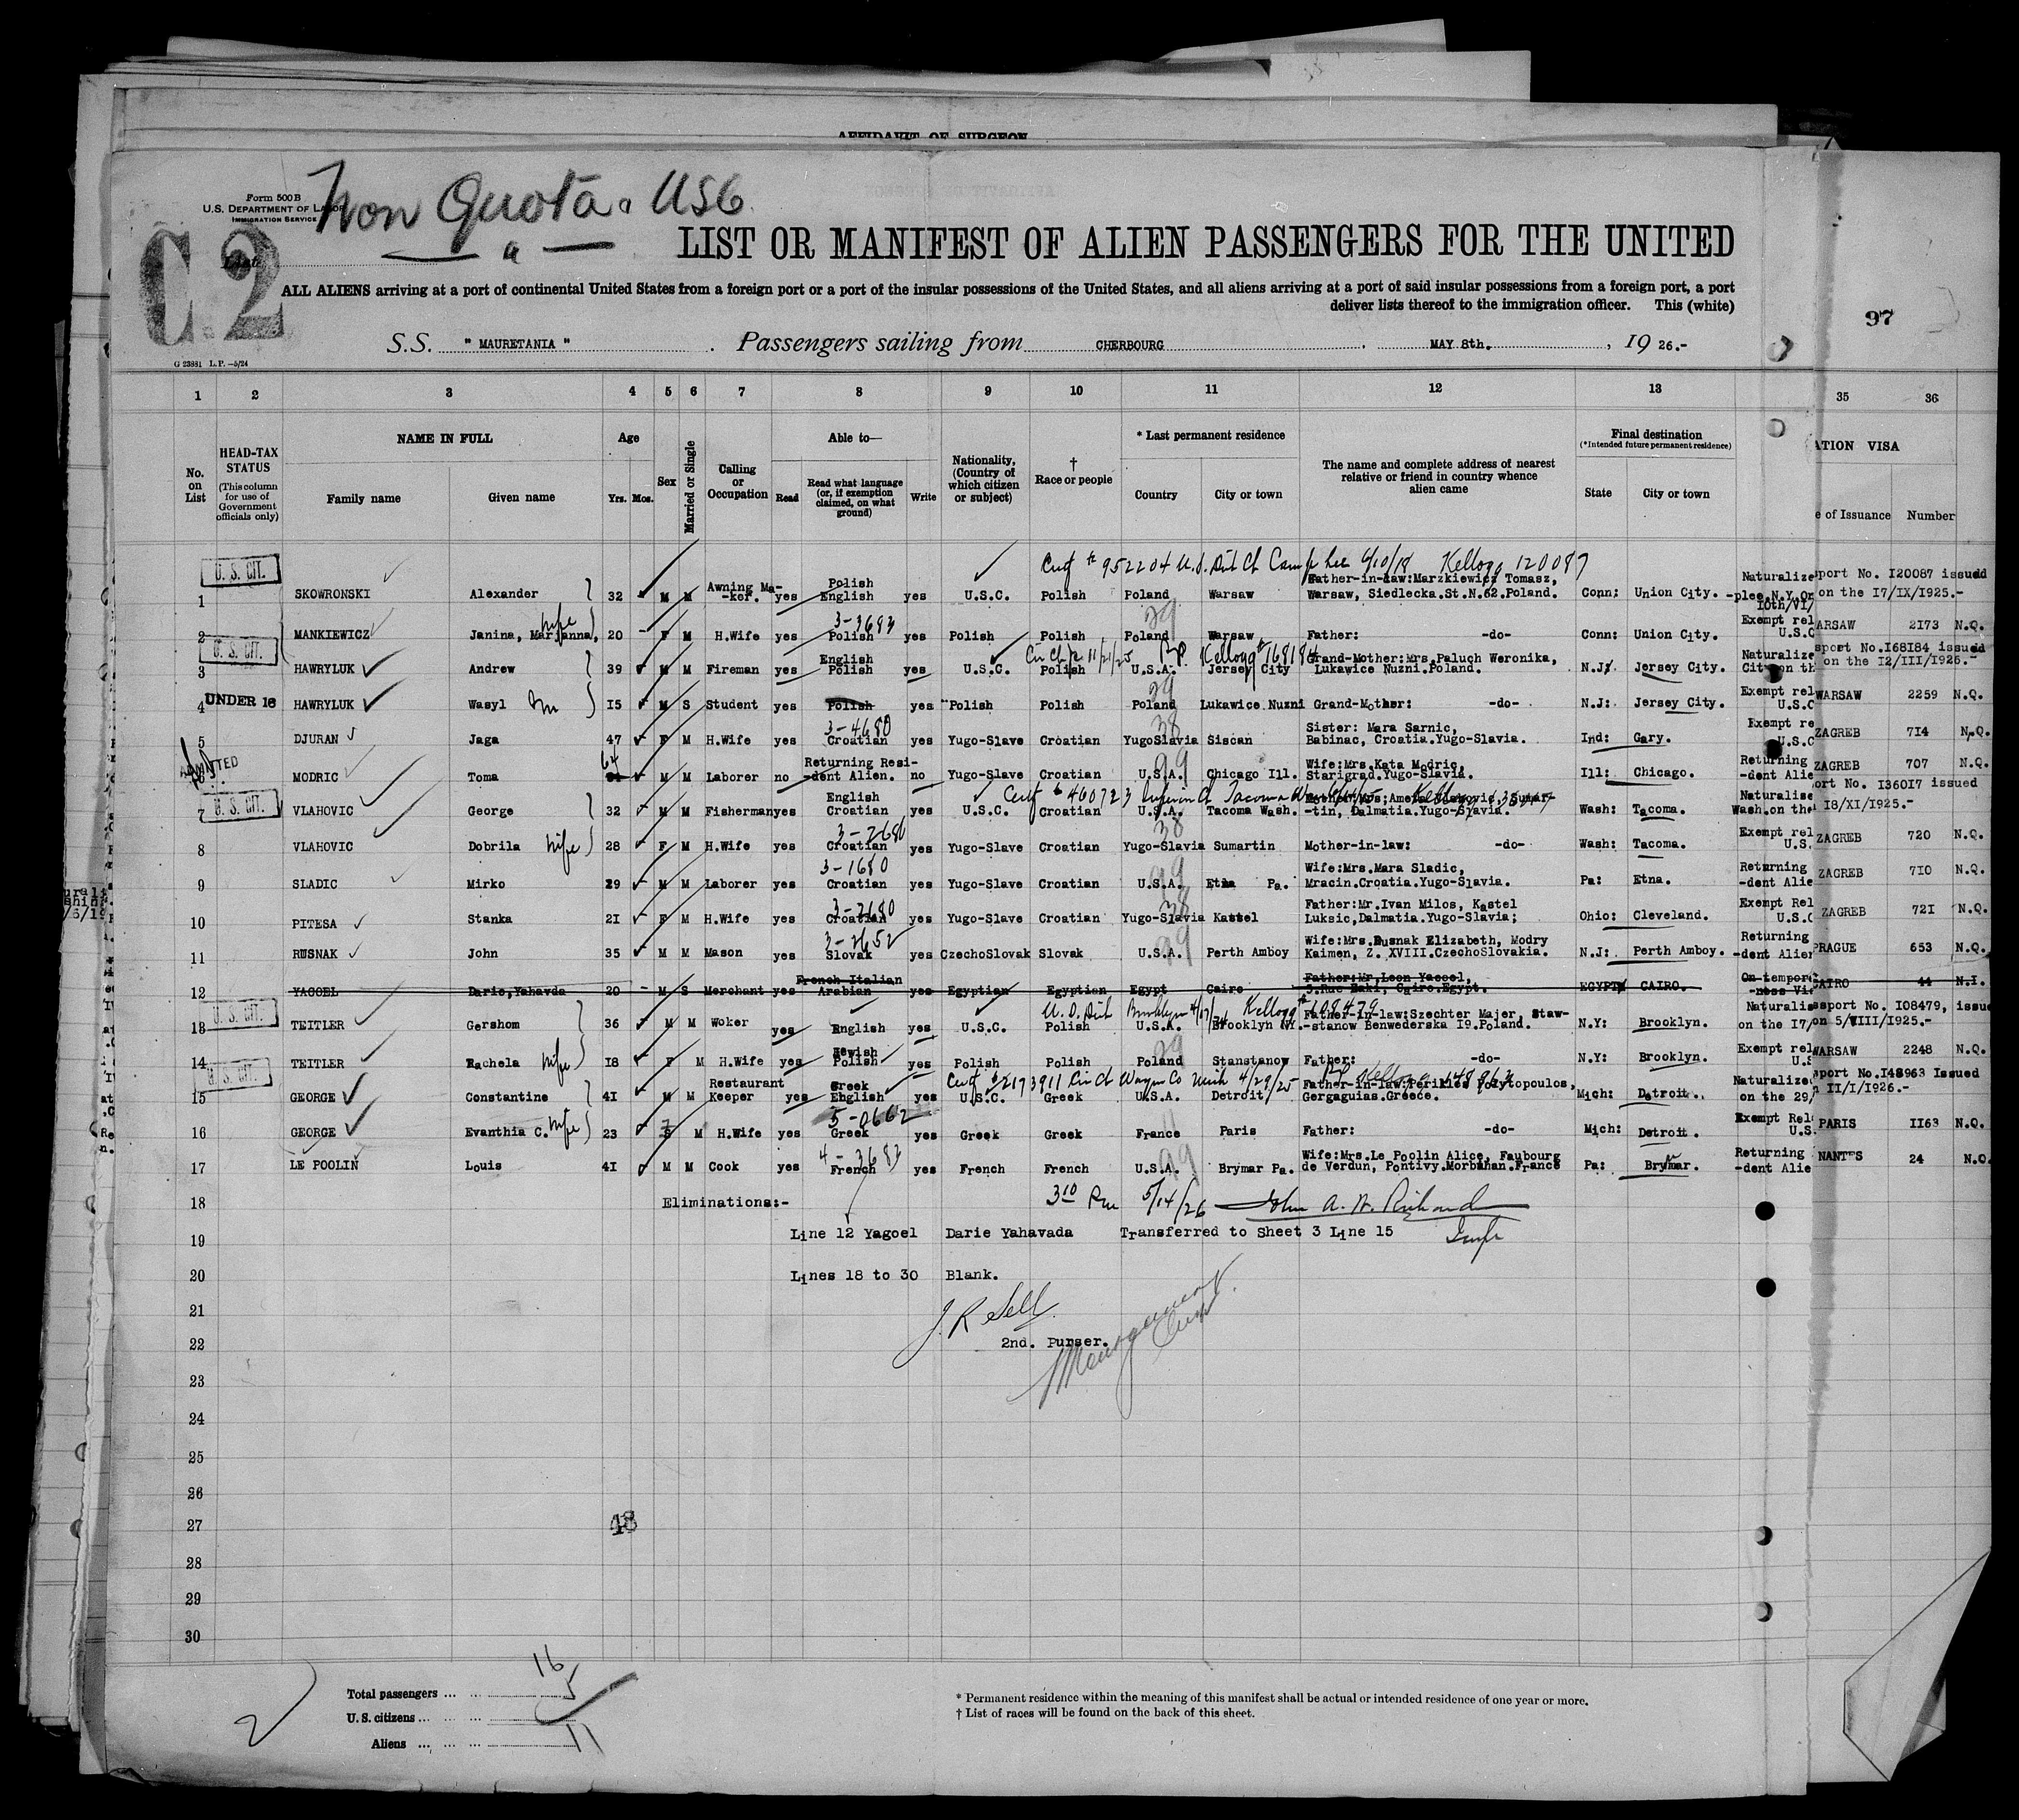 AFFIDAVIT OF SURGEON
Form 500 B
U.S. DEPARTMENT OF LABOR
IMMIGRATION SERVICE
Non Quota USC
C 2
List
LIST OR MANIFEST OF ALIEN PASSENGERS FOR THE UNITED
ALL ALIENS arriving at a port of continental United States from a foreign port or a port of the insular possessions of the United States, and all aliens arriving at a port of said insular possessions from a foreign port, a port
deliver lists thereof to the immigration officer. This (white)
97
S.S. " MAURETANIA " . Passengers sailing from CHERBOURG , MAY 8th. , 19 26.-
G 23881 L.P.—5/24
1 2 3 4 5 6 7 8 9 10 11 12 13 35 36
No. on List
HEAD-TAX STATUS (This column for use of Government officials only)
NAME IN FULL
Family name Given name
Age
Yrs. Mos.
Sex
Married or Single
Calling or Occupation
Able to—
Read Read what language (or, if exemption claimed, on what ground) Write
Nationality, (Country of which citizen or subject)
† Race or people
* Last permanent residence
Country City or town
The name and complete address of nearest relative or friend in country whence alien came
Final destination
(*Intended future permanent residence)
State City or town
ATION VISA
e of Issuance Number
Cert # 952204 U.S. Dist Ct Camp Lee 6/10/18 Kellogg 120087
U. S. CIT.
1 SKOWRONSKI Alexander 32 M M Awning Ma--ker. yes Polish English yes U.S.C. Polish Poland Warsaw Father-in-law:Marzkiewicz Tomasz, Warsaw, Siedlecka.St.N.62.Poland. Conn: Union City. Naturalize -plee.N.Y.On 10th/VI/ port No. I20087 issued on the I7/IX/1925.-
2 MANKIEWICZ Janina, Marjanna, wife 20 F M H.Wife yes 3-3683 Polish yes Polish Polish Poland 29 Warsaw Father: -do- Conn: Union City. Exempt rel U.S.C WARSAW 2173 N.Q.
U. S. CIT.
Kellogg # 168184
3 HAWRYLUK Andrew 39 M M Fireman yes English Polish yes U.S.C. Polish U.S.A. Jersey City Grand-Mother:Mrs.Paluch Weronika, Lukawice Nuzni.Poland. N.J: Jersey City. Naturalize City on th sport No.I68I84 issued on the I2/III/1926.-
UNDER 16
4 HAWRYLUK Wasyl I5 M S Student yes Polish yes Polish Polish Poland 29 Lukawice Nuzni Grand-Mother: -do- N.J: Jersey City. Exempt rel U.S.C WARSAW 2259 N.Q.
5 DJURAN Jaga 47 F M H.Wife yes 3-4680 Croatian yes Yugo-Slave Croatian YugoSlavia 38 Siscan Sister: Mara Sarnic, Babinac, Croatia.Yugo-Slavia. Ind: Gary. Exempt re U.S.C ZAGREB 7I4 N.Q.
ADMITTED
6 MODRIC Toma 64 M M Laborer no Returning Resi--dent Alien. no Yugo-Slave Croatian U.S.A. 99 Chicago Ill. Wife:Mrs.Kata Modric, Starigrad.Yugo-Slavia. Ill: Chicago. Returning -dent Alie ZAGREB 707 N.Q.
U. S. CIT.
Cert # 460723 Superior Ct Tacoma Kellogg
7 VLAHOVIC George 32 M M Fisherman yes English Croatian yes U.S.C. Croatian U.S.A. Tacoma Wash. -tin, Dalmatia.Yugo-Slavia. Wash: Tacoma. Naturalise Wash.on the ort No. I360I7 issued I8/XI/1925.-
8 VLAHOVIC Dobrila wife 28 F M H.Wife yes 3-2680 Croatian yes Yugo-Slave Croatian Yugo-Slavia 38 Sumartin Mother-in-law: -do- Wash: Tacoma. Exempt rel U.S. ZAGREB 720 N.Q.
9 SLADIC Mirko 29 M M Laborer yes 3-1680 Croatian yes Yugo-Slave Croatian U.S.A. 99 Etna Pa. Wife:Mrs.Mara Sladic, Mracin.Croatia.Yugo-Slavia. Pa: Etna. Returning -dent Alie ZAGREB 7I0 N.Q.
10 PITESA Stanka 2I F M H.Wife yes 3-2680 Croatian yes Yugo-Slave Croatian Yugo-Slavia 38 Kastel Father:Mr.Ivan Milos, Kastel Luksic,Dalmatia.Yugo-Slavia; Ohio: Cleveland. Exempt Rel U.S.C ZAGREB 72I N.Q.
11 RUSNAK John 35 M M Mason yes 3-2652 Slovak yes CzechoSlovak Slovak U.S.A. 99 Perth Amboy Wife:Mrs.Rusnak Elizabeth, Modry Kaimen, Z. XVIII.CzechoSlovakia. N.J: Perth Amboy. Returning -dent Alien PRAGUE 653 N.Q.
12 YAGOEL Darie,Yahavda 20 M S Merchant yes French Italian Arabian yes Egyptian Egyptian Egypt Cairo Father:Mr.Leon Yagoel, 3.Rue Zaki, Cairo.Egypt. EGYPT CAIRO. On tempor -ness Vis CAIRO 44 N.I.
U. S. CIT.
U.S. Dist Brooklyn Kellogg # 108479
13 TEITLER Gershom 36 M M Woker yes English yes U.S.C. Polish U.S.A. Brooklyn NY. Father-in-law:Szechter Majer, Staw--stanow Benwederska I9.Poland. N.Y: Brooklyn. Naturalis on the I7/ ssport No. I08479, issue on 5/VIII/1925.-
14 TEITLER Rachela wife I8 F M H.Wife yes Jewish Polish yes Polish Polish Poland 29 Stanstanow Father: -do- N.Y: Brooklyn. Exempt rel U.S WARSAW 2248 N.Q.
U. S. CIT.
Cert # 2173911 Cir Ct Wayne Co Mich 4/29/25 Kellogg 148963
15 GEORGE Constantine 4I M M Restaurant Keeper yes Greek English yes U.S.C. Greek U.S.A. Detroit Father-in-law:Perikles Polytopoulos, Gergaguias.Greece. Mich: Detroit. Naturalized on the 29/ port No.I48963 Issued II/I/1926.-
16 GEORGE Evanthia C. wife 23 M H.Wife yes 5-0662 Greek yes Greek Greek France Paris Father: -do- Mich: Detroit. Exempt Rel U.S. PARIS II63 N.Q.
17 LE POOLIN Louis 4I M M Cook yes 4-3683 French yes French French U.S.A. 99 Brymar Pa. Wife:Mrs.Le Poolin Alice, Faubourg de Verdun, Pontivy.Morbihan.France Pa: Brymar. Returning -dent Alie NANTES 24 N.Q.
18 Eliminations:- 3 10 Pm 5/14/26 John A. W. Richard
19 Line 12 Yagoel Darie Yahavada Transferred to Sheet 3 Line 15 Insp
20 Lines 18 to 30 Blank.
21 J R Sell
22 2nd. Purser.
23
24
25
26
27 48
28
29
30
Total passengers ... ... 16
U.S. citizens ... ... ... 5
Aliens ... ... ... 11
2
* Permanent residence within the meaning of this manifest shall be actual or intended residence of one year or more.
† List of races will be found on the back of this sheet.